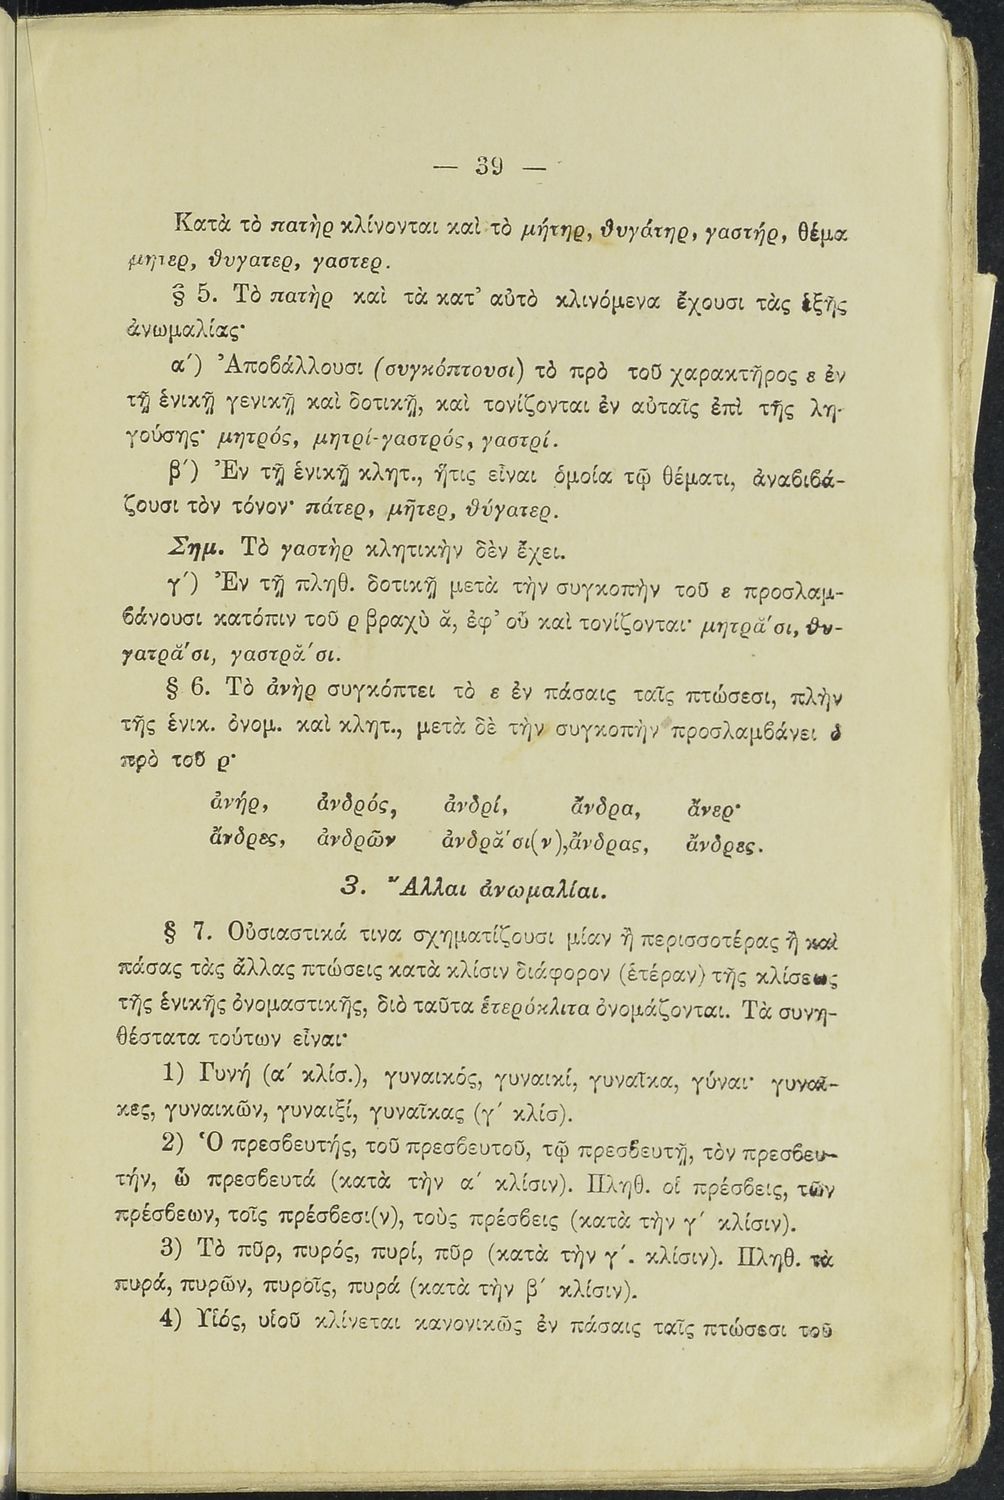 — 39 —
Κατὰ τὸ πατὴρ κλίνονται καὶ τὸ μήτηρ, θυγάτηρ, γαστήρ, θέμα
μητερ, θυγατερ, γαστερ.
§ 5. Τὸ πατὴρ καὶ τὰ κατ’ αὐτὸ κλινόμενα ἔχουσι τὰς ἑξῆς
ἀνωμαλίας·
α΄) Ἀποβάλλουσι (συγκόπτουσι) τὸ πρὸ τοῦ χαρακτῆρος ε ἐν
τῇ ἑνικῇ γενικῇ καὶ δοτικῇ, καὶ τονίζονται ἐν αὐταῖς ἐπὶ τῆς λη-
γούσης· μητρός, μητρί-γαστρός, γαστρί.
β΄) Ἐν τῇ ἑνικῇ κλητ., ἥτις εἶναι ὁμοία τῷ θέματι, ἀναβιβά-
ζουσι τὸν τόνον· πάτερ, μῆτερ, θύγατερ.
Σημ. Τὸ γαστὴρ κλητικὴν δὲν ἔχει.
γ΄) Ἐν τῇ πληθ. δοτικῇ μετὰ τὴν συγκοπὴν τοῦ ε προσλαμ-
βάνουσι κατόπιν τοῦ ρ βραχὺ ᾰ, ἐφ’ οὗ καὶ τονίζονται· μητρᾰ́σι, θυ-
γατρᾰ́σι, γαστρᾰ́σι.
§ 6. Τὸ ἀνὴρ συγκόπτει τὸ ε ἐν πάσαις ταῖς πτώσεσι, πλὴν
τῆς ἑνικ. ὀνομ. καὶ κλητ., μετὰ δὲ τὴν συγκοπὴν προσλαμβάνει δ
πρὸ τοῦ ρ·
ἀνήρ, ἀνδρός, ἀνδρί, ἄνδρα, ἄνερ·
ἄνδρες, ἀνδρῶν ἀνδρᾰ́σι(ν), ἄνδρας, ἄνδρες.
3. Ἄλλαι ἀνωμαλίαι.
§ 7. Οὐσιαστικά τινα σχηματίζουσι μίαν ἢ περισσοτέρας ἢ καὶ
πάσας τὰς ἄλλας πτώσεις κατὰ κλίσιν διάφορον (ἑτέραν) τῆς κλίσεως
τῆς ἑνικῆς ὀνομαστικῆς, διὸ ταῦτα ἑτερόκλιτα ὀνομάζονται. Τὰ συνη-
θέστατα τούτων εἶναι·
1) Γυνή (α΄ κλίσ.), γυναικός, γυναικί, γυναῖκα, γύναι· γυναῖ-
κες, γυναικῶν, γυναιξί, γυναῖκας (γ΄ κλίσ).
2) Ὁ πρεσβευτής, τοῦ πρεσβευτοῦ, τῷ πρεσβευτῇ, τὸν πρεσβευ-
τήν, ὦ πρεσβευτά (κατὰ τὴν α΄ κλίσιν). Πληθ. οἱ πρέσβεις, τῶν
πρέσβεων, τοῖς πρέσβεσι(ν), τοὺς πρέσβεις (κατὰ τὴν γ΄ κλίσιν).
3) Τὸ πῦρ, πυρός, πυρί, πῦρ (κατὰ τὴν γ΄. κλίσιν). Πληθ. τὰ
πυρά, πυρῶν, πυροῖς, πυρά (κατὰ τὴν β΄ κλίσιν).
4) Υἱός, υἱοῦ κλίνεται κανονικῶς ἐν πάσαις ταῖς πτώσεσι τοῦ